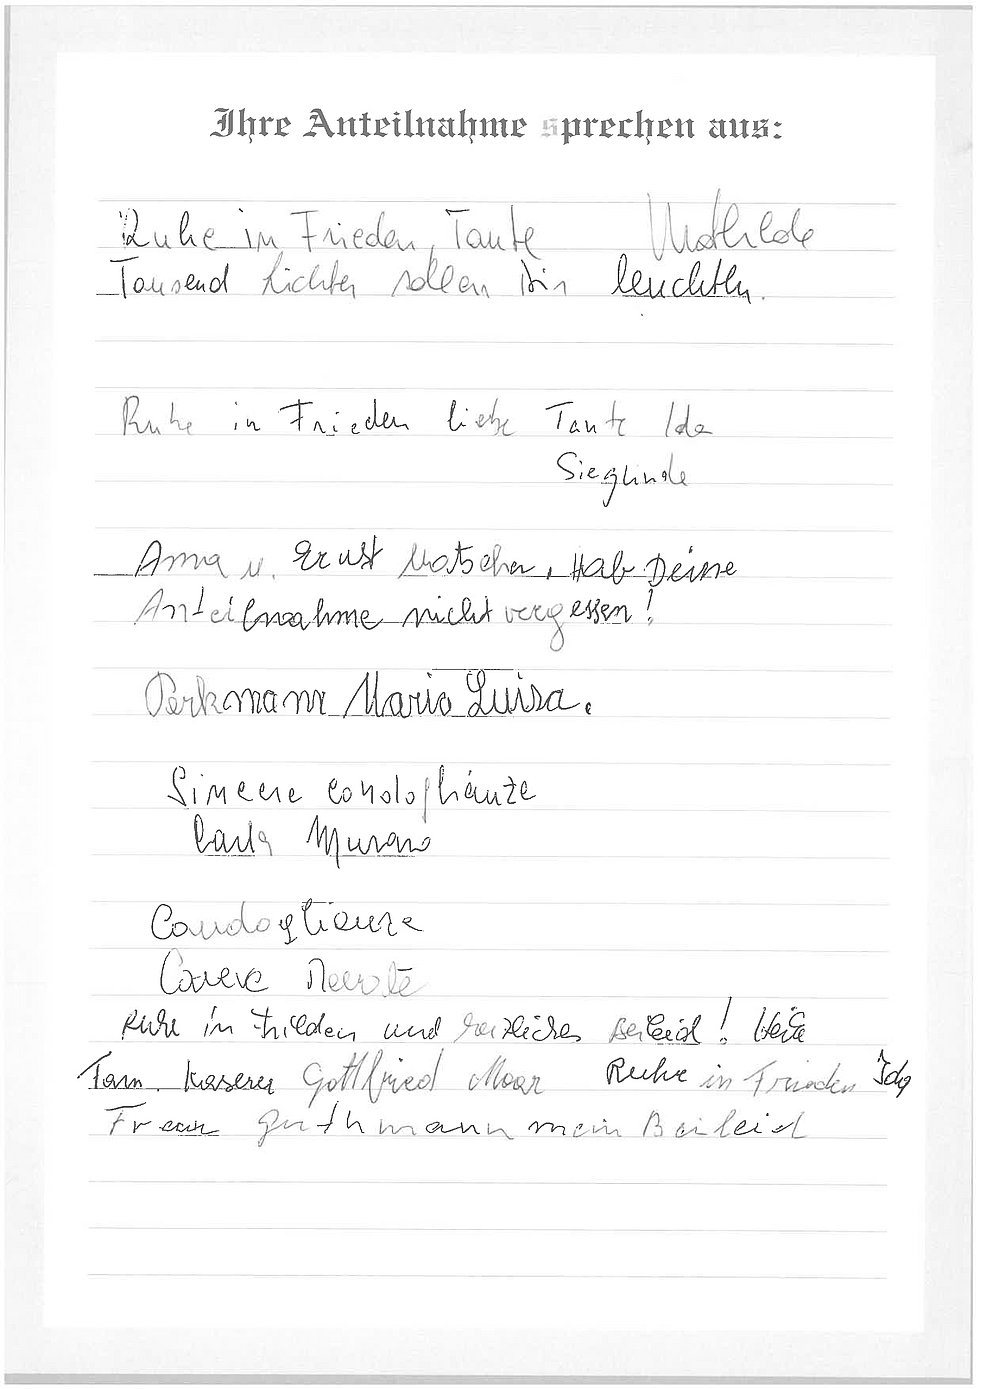 Ihre Anteilnahme sprechen aus:
Ruhe in Frieden, Tante Mathilde
Tausend Lichter sollen Dir leuchten.
Ruhe in Frieden liebe Tante Ida
Sieglinde
Anna u. Ernst Matscher, Hab Deine
Anteilnahme nicht vergessen!
Perkmann Maria Luisa.
Sincere condoglianze
Carla Murano
Condoglianze
Ruhe in Frieden und herzliches Beileid!
Fam. Kaserer Gottfried Moar Ruhe in Frieden Ida
Frau Guthmann mein Beileid